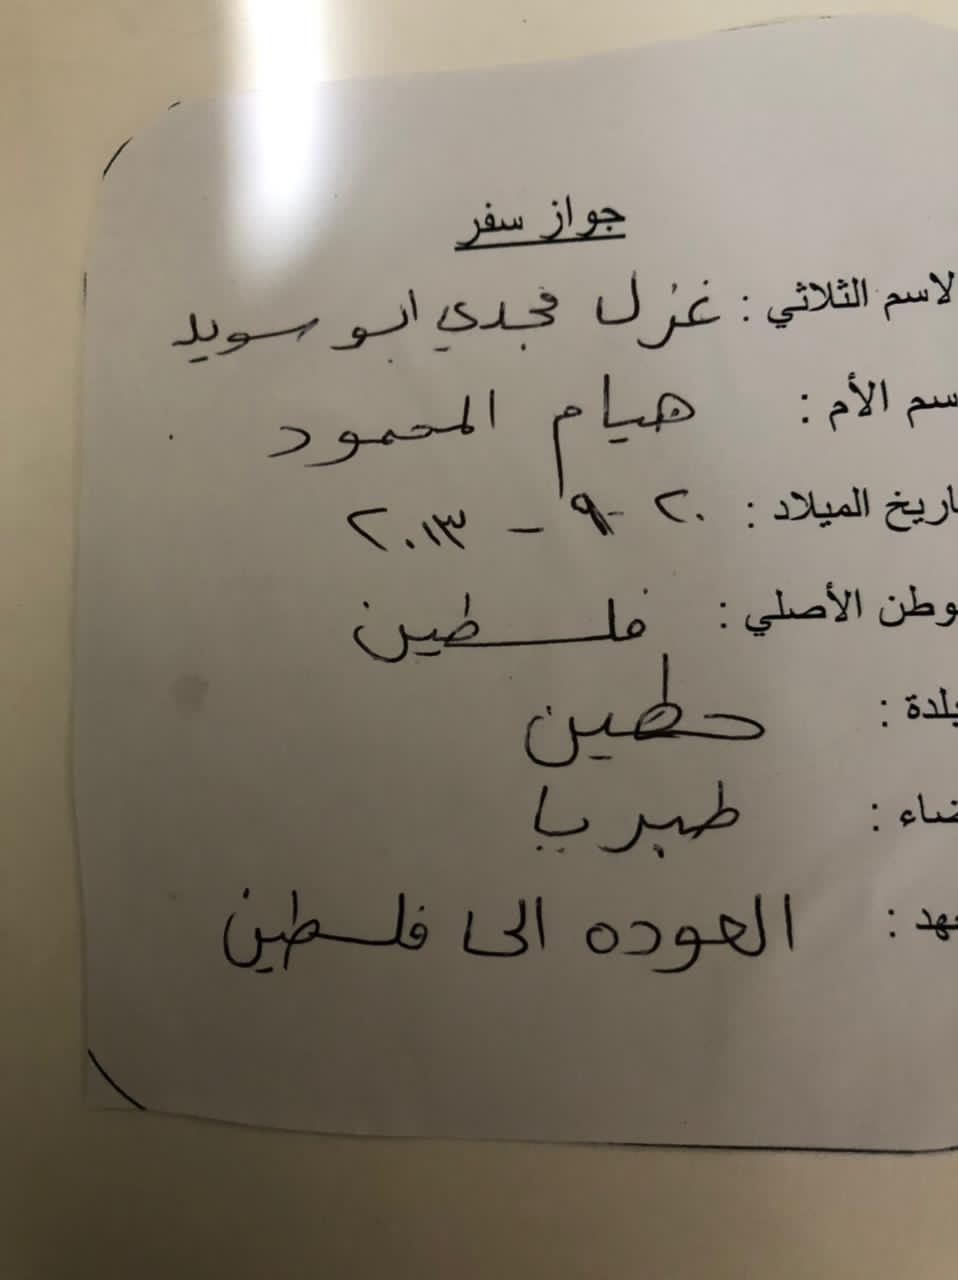 جواز سفر
لاسم الثلاثي : غزل مجدي ابو سويد
سم الأم : هيام المحمود
اريخ الميلاد : ٢٠ - ٩ - ٢٠١٣
وطن الأصلي : فلسطين
بلدة : حطين
ضاء : طبريا
عهد : العوده الى فلسطين